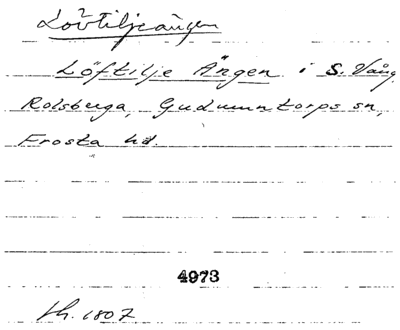 Lövtiljeängen
Löftilje Ängen i S. Vång,
Rolsberga, Gudmuntorps sn,
Frosta hd.
4973
Lh. 1807